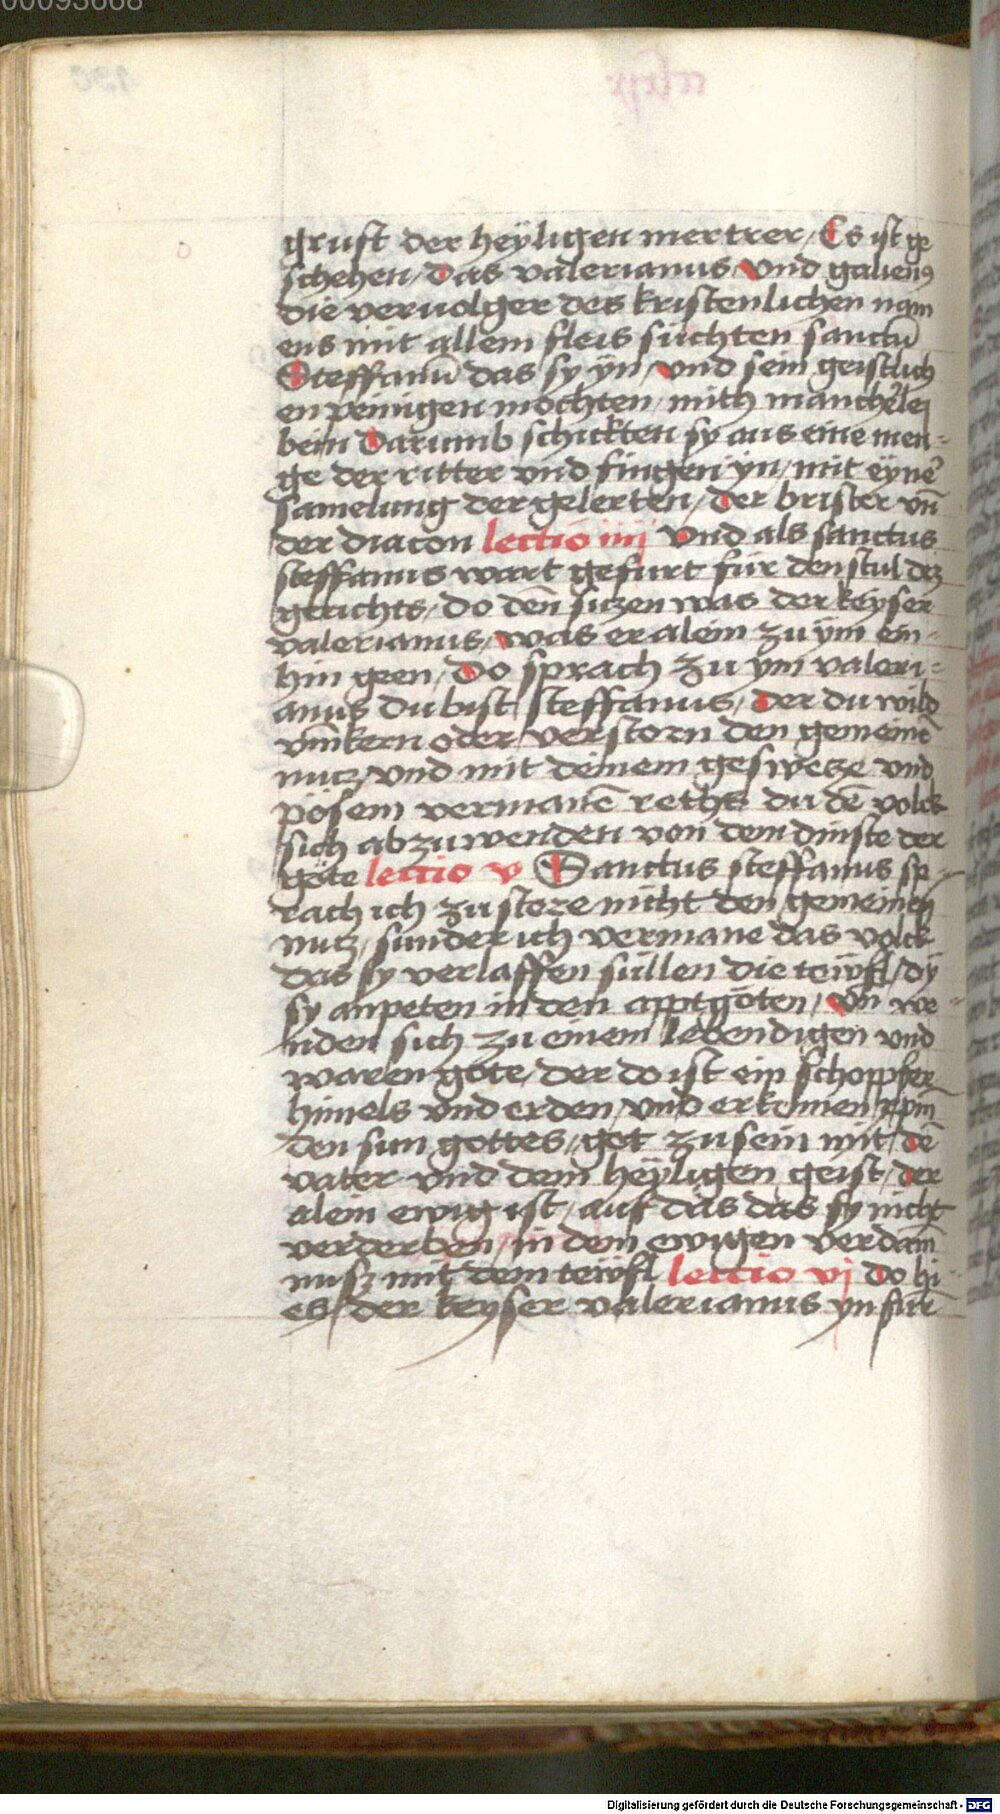 00093668
gruft der heyligen mertrer / Es ist ge
schehen / Das valerianus / Vnd galienꝰ
die veruolger des kristenlichen nam
ens mit allem fleis suchten sanctū
Steffanū das sy yn / vnd sein geistlich
en peinigen mochten / mith mancherlej
bein Darumb schickten sy aus eine men-
ge der ritter vnd fingen yn / mit eynē
samelung der gelerten / der brister vn̄
der diacon lectio iiij Vnd als sanctus
steffanus wart gefurt fur den stul dez
gerichts / do den siczen was der keyser
valerianus / was er alein zu ym ein-
hin geen / Do sprach zu ym valeri-
anus du bist steffanus / Der du wild
vmkern oder verstorn den gemeinē
nucz / vnd mit deinem geswecze vnd
pösem vermanē rethst du dē volck
sich abzuwenden von dem dinste der
göte lectio v Sanctus steffanus sp-
rach ich zustore nicht den gemeinen
nucz / sunder ich vermane das volck
das sy verlassen süllen die tewfl / dy
sy anpeten in den apptgöten / Vn̄ we-
nden sich zu einem lebendigen vnd
waren gote / der do ist ein schoppfer
himels vnd erden / vnd erkennen xp̄m
den sun gottes / got zu sein mit dē
vater vnd dem heyligen geist / der
alein ewig ist / auf das das sy nicht
verderben / in dem ewigen verdam̄
nusz mit dem tewfl lectio vj Do hi-
es / der keyser valerianus yn furn̄
Digitalisierung gefördert durch die Deutsche Forschungsgemeinschaft - DFG